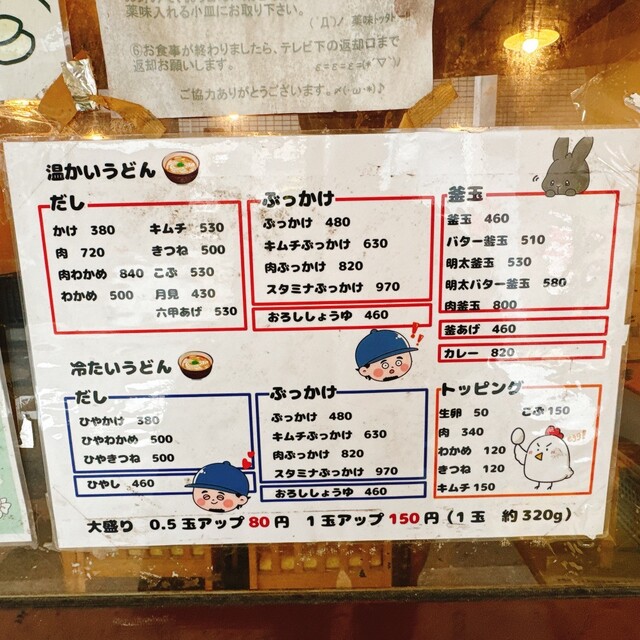 薬味入れる小皿にお取り下さい。
(´Д`)ノ 薬味トッタドー!!
⑥お食事が終わりましたら、テレビ下の返却口まで
返却お願いします。
ご協力ありがとうございます。〆(・ω・*)♪
温かいうどん
だし
かけ 380 キムチ 530
肉 720 きつね 500
肉わかめ 840 こぶ 530
わかめ 500 月見 430
六甲あげ 530
ぶっかけ
ぶっかけ 480
キムチぶっかけ 630
肉ぶっかけ 820
スタミナぶっかけ 970
おろししょうゆ 460
釜玉
釜玉 460
バター釜玉 510
明太釜玉 530
明太バター釜玉 580
肉釜玉 800
釜あげ 460
カレー 820
冷たいうどん
だし
ひやかけ 380
ひやわかめ 500
ひやきつね 500
ひやし 460
ぶっかけ
ぶっかけ 480
キムチぶっかけ 630
肉ぶっかけ 820
スタミナぶっかけ 970
おろししょうゆ 460
トッピング
生卵 50 こぶ 150
肉 340
わかめ 120
きつね 120
キムチ 150
大盛り 0.5玉アップ80円 1玉アップ150円(1玉 約320g)